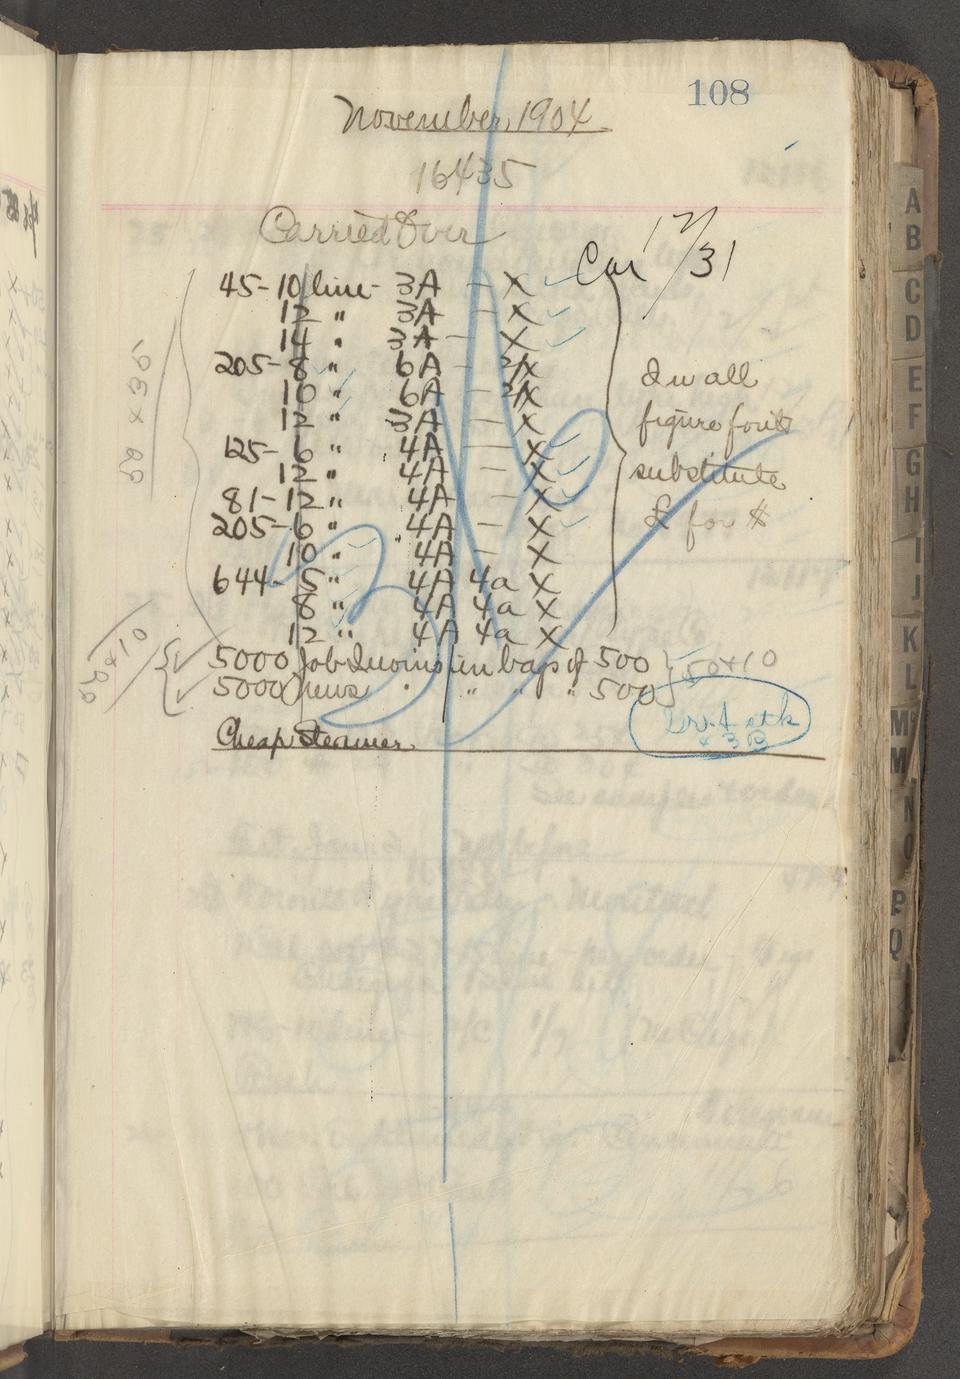 108
November, 1904
16435
Carried Over
Car 12/31
45-10 line - 3A - X
12 " 3A - X
14 " 3A - X
205-8 " 6A - 2/X
10 " 6A - 2/X
12 " 3A - X
125-6 " 4A - X
12 " 4A - X
81-12 " 4A - X
205-6 " 4A - X
10 " 4A - X
644-5 " 4A 4a X
8 " 4A 4a X
12 " 4A 4a X
In all
figure fonts
substitute
£ for $
5000 Job Quoins in bags of 500
5000 news " " " " 500
50 x 10
Cheap Steamer
A
B
C
D
E
F
G
H
I
J
K
L
Mc
M
N
O
P
Q